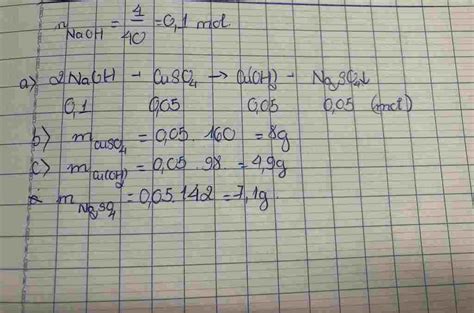 n NaOH = 4/40 = 0,1 mol
a) 2NaOH + CuSO4 → Cu(OH)2 + Na2SO4
0,1 0,05 0,05 0,05 (mol)
b) m CuSO4 = 0,05 . 160 = 8g
c) m Cu(OH)2 = 0,05 . 98 = 4,9g
m Na2SO4 = 0,05 . 142 = 7,1g